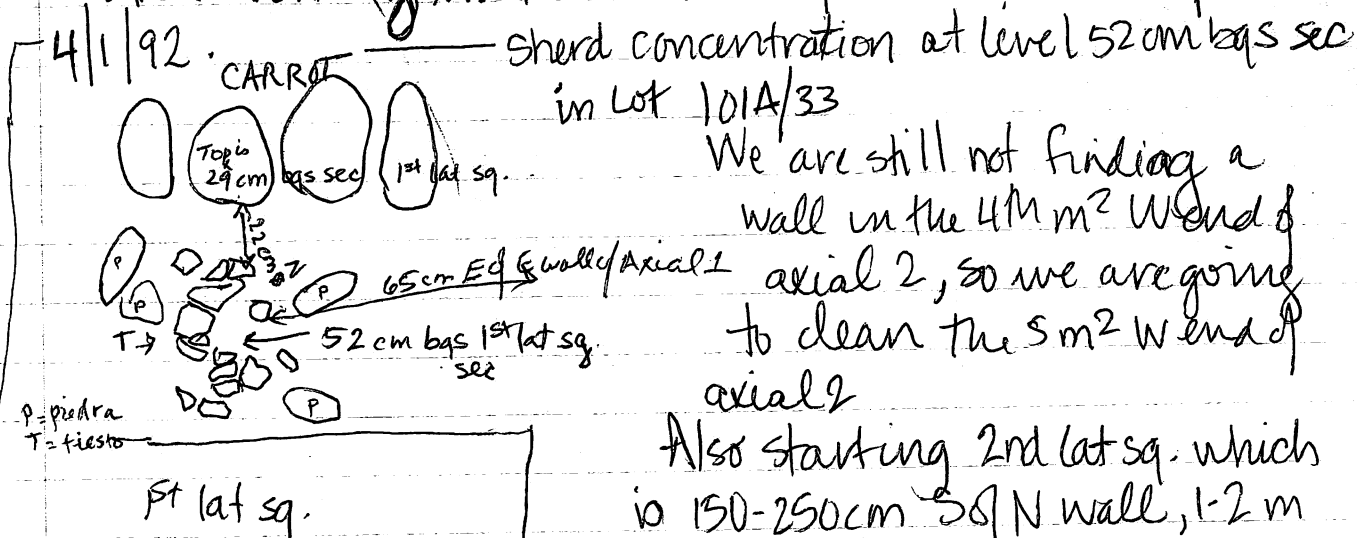 4/1/92. Sherd concentration at level 52 cm bgs sec
in Lot 101A/33
CARROT
Top is
29 cm bgs sec
1st lat sq.
22cm
P
P
P
65cm E of E wall of Axial 1
T→
52 cm bgs 1st lat sq.
sec
P
P = piedra
T = tiesto
1st lat sq.
We are still not finding a
wall in the 4th m² W end of
axial 2, so we are going
to clean the 5 m² W end of
axial 2
Also starting 2nd lat sq. which
is 150-250cm S of N wall, 1-2 m